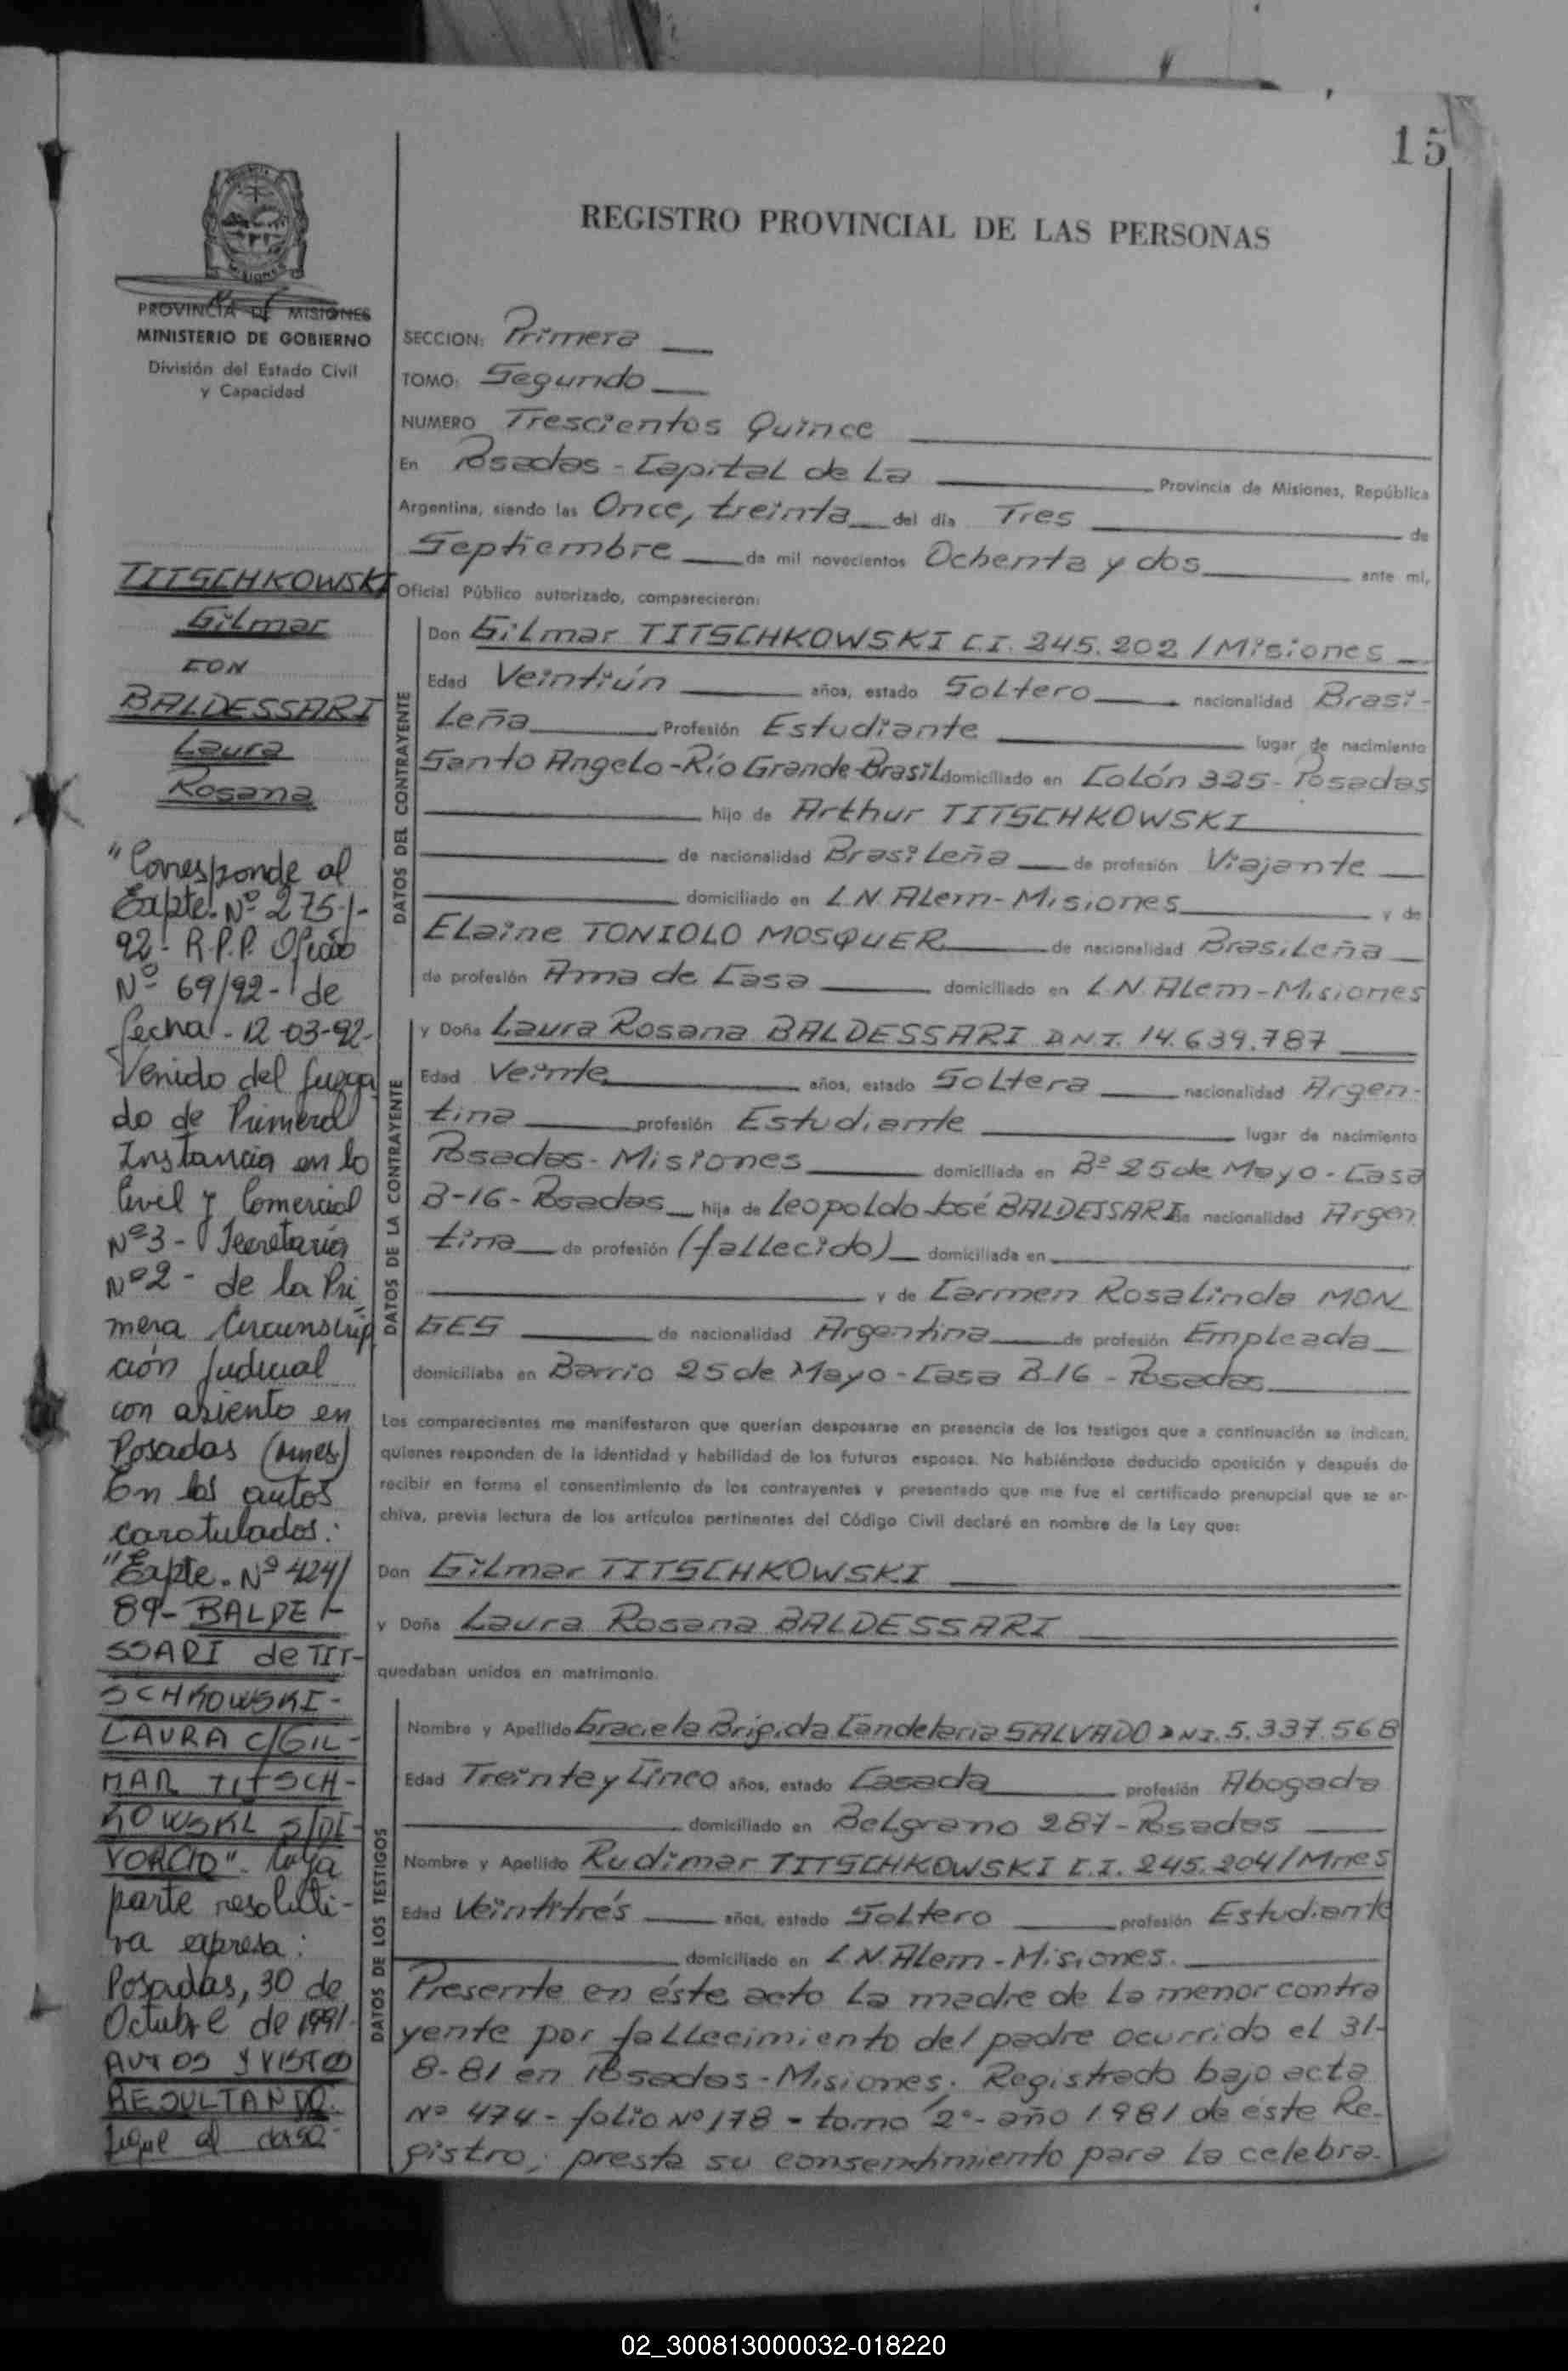 15
REGISTRO PROVINCIAL DE LAS PERSONAS
PROVINCIA DE MISIONES
MINISTERIO DE GOBIERNO
División del Estado Civil
y Capacidad
TITSCHKOWSKI
Gilmar
CON
BALDESSARI
Laura
Rosana
"Corresponde al
Expte. Nº 275-/-
92- R.P.P. Oficio
Nº 69/92- de
fecha - 12-03-92-
Venido del Juzga
do de Primera
Instancia en lo
Civil y Comercial
Nº3 - Secretaría
Nº2 - de la Pri
mera Circunscrip
ción Judicial
con asiento en
Posadas (mnes)
En los autos
caratulados:
"Expte. Nº 424/
89- BALDE-
SSARI de TIT-
SCHKOWSKI-
LAURA C/GIL-
MAR TITSCH-
KOWSKI S/DI-
VORCIO". Cuya
parte resoluti-
va expresa:
Posadas, 30 de
Octubre de 1991-
AUTOS Y VISTOS
RESULTANDO:
Sigue al dorso-
SECCION: Primera
TOMO: Segundo
NUMERO Trescientos Quince
En Posadas - Capital de La Provincia de Misiones, República
Argentina, siendo las Once, treinta del día Tres de
Septiembre de mil novecientos Ochenta y dos ante mí,
Oficial Público autorizado, comparecieron:
DATOS DEL CONTRAYENTE
Don Gilmar TITSCHKOWSKI C.I. 245.202 / Misiones
Edad Veintiún años, estado Soltero nacionalidad Brasi-
Leña Profesión Estudiante lugar de nacimiento
Santo Angelo-Río Grande-Brasil domiciliado en Colón 325 - Posadas
hijo de Arthur TITSCHKOWSKI
de nacionalidad Brasileña de profesión Viajante
domiciliado en L.N. Alem - Misiones y de
Elaine TONIOLO MOSQUER de nacionalidad Brasileña
de profesión Ama de Casa domiciliado en L.N. Alem - Misiones
DATOS DE LA CONTRAYENTE
y Doña Laura Rosana BALDESSARI D.N.I. 14.639.787
Edad Veinte años, estado Soltera nacionalidad Argen-
tina profesión Estudiante lugar de nacimiento
Posadas - Misiones domiciliada en Bº 25 de Mayo - Casa
B-16 - Posadas hija de Leopoldo José BALDESSARI de nacionalidad Argen
tina de profesión (fallecido) domiciliado en
y de Carmen Rosalinda MON
GES de nacionalidad Argentina de profesión Empleada
domiciliaba en Barrio 25 de Mayo - Casa B-16 - Posadas
Los comparecientes me manifestaron que querían desposarse en presencia de los testigos que a continuación se indican,
quienes responden de la identidad y habilidad de los futuros esposos. No habiéndose deducido oposición y después de
recibir en forma el consentimiento de los contrayentes y presentado que me fue el certificado prenupcial que se ar-
chiva, previa lectura de los artículos pertinentes del Código Civil declaré en nombre de la Ley que:
Don Gilmar TITSCHKOWSKI
y Doña Laura Rosana BALDESSARI
quedaban unidos en matrimonio.
DATOS DE LOS TESTIGOS
Nombre y Apellido Graciela Brigida Candelaria SALVADO DNI. 5.337.568
Edad Treinta y Cinco años, estado Casada profesión Abogada
domiciliado en Belgrano 287 - Posadas
Nombre y Apellido Rudimar TITSCHKOWSKI C.I. 245.204/Mnes
Edad Veintitrés años, estado Soltero profesión Estudiante
domiciliado en L.N. Alem - Misiones.
Presente en éste acto la madre de la menor contra
yente por fallecimiento del padre ocurrido el 31-
8-81 en Posadas - Misiones; Registrado bajo acta
Nº 474 - folio Nº 178 - tomo 2º- año 1981 de éste Re-
gistro; presta su consentimiento para la celebra-
02_300813000032-018220